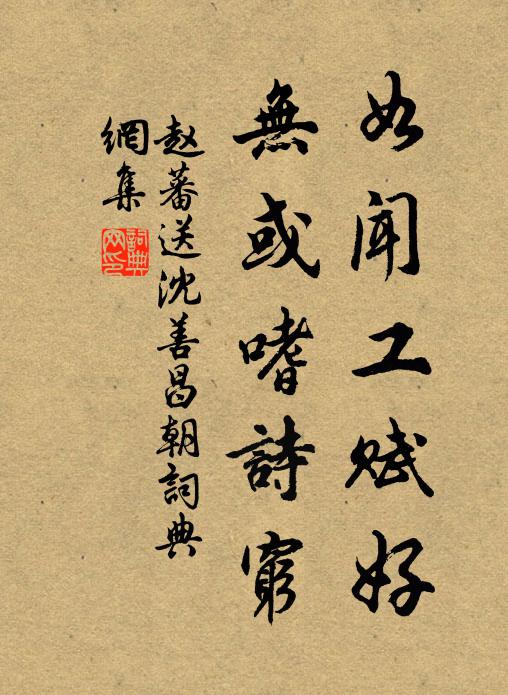 如闻工赋好
無或嗜詩窮
赵蕃送沈善昌朝詞典
網集
詞典網印